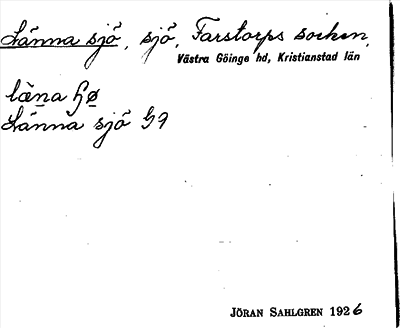 Länna sjö, sjö, Farstorps socken,
Västra Göinge hd, Kristianstad län
Länna sjö
JÖRAN SAHLGREN 1926